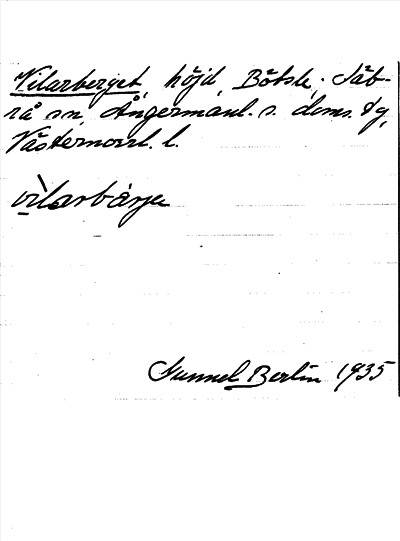 Vilarberget, höjd, Bölsle, Säb-
rå sn, Ångermanl. s. doms. tg,
Västernorrl. l.
vìlarbärje
Gunnel Berlin 1935